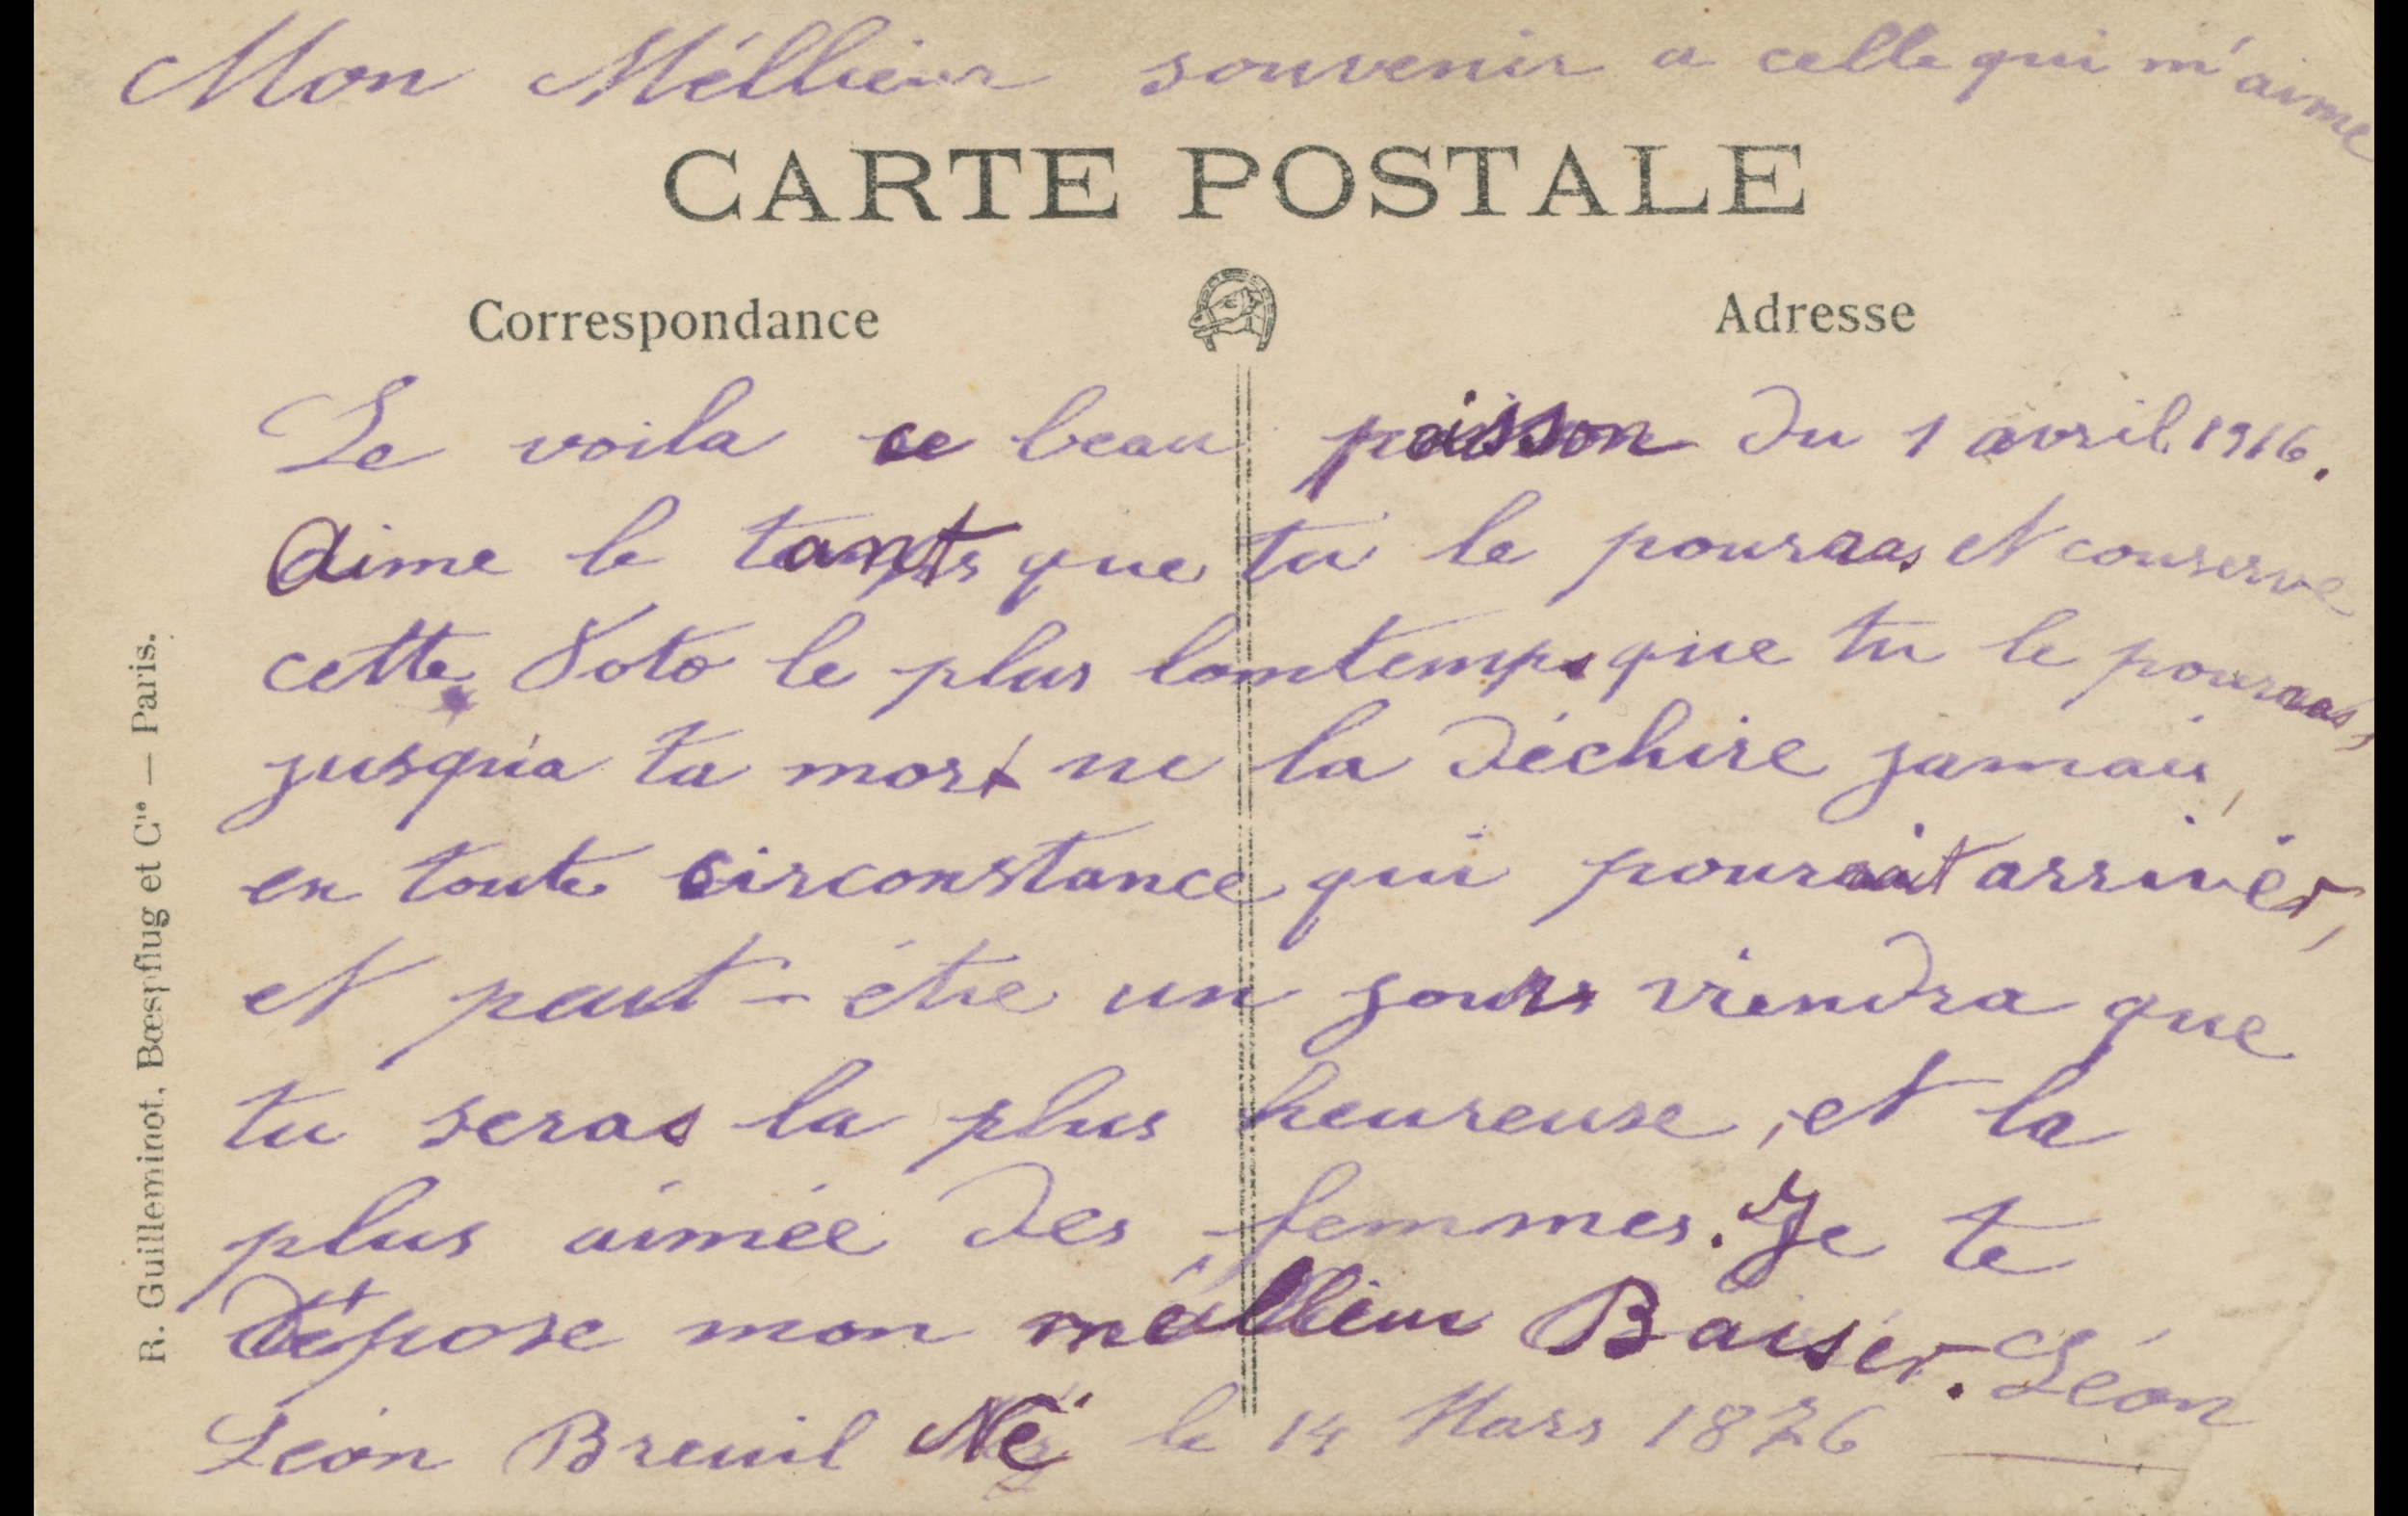 Mon Méllieur souvenir a celle qui m'aime
CARTE POSTALE
Correspondance
Adresse
Le voila ce beau poisson du 1 avril 1916.
Aime le tant que tu le pouras et conserve
cette Foto le plus lontemps que tu le pouras,
jusqu'a ta mort ne la déchire jamais,
en toute circonstance qui pourait arriver,
et peut-être un jour viendra que
tu seras la plus heureuse, et la
plus aimée des femmes. Je te
dépose mon meillieur Baiser. Léon
Léon Breuil Né le 14 Mars 1876
R. Guilleminot, Bœspflug et Cie — Paris.